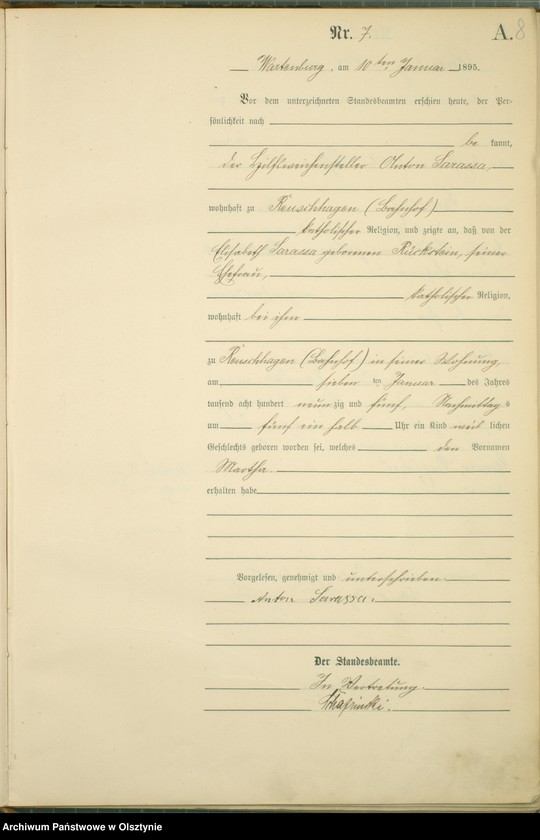 Nr. 7.
A. 8
Wartenburg, am 10 ten Januar 1895.
Vor dem unterzeichneten Standesbeamten erschien heute, der Per-
sönlichkeit nach
be kannt,
der Hilfsweichensteller Anton Sarassa,
wohnhaft zu Reuschhagen (Bahnhof)
katholischer Religion, und zeigte an, daß von der
Elisabeth Sarassa gebornen Rückstein, seiner
Ehefrau,
katholischer Religion,
wohnhaft bei ihm
zu Reuschhagen (Bahnhof) in seiner Wohnung,
am sieben ten Januar des Jahres
tausend acht hundert neun zig und fünf, Nachmittag s
um fünf ein halb Uhr ein Kind weib lichen
Geschlechts geboren worden sei, welches den Vornamen
Martha
erhalten habe
Vorgelesen, genehmigt und unterschrieben
Anton Sarassa.
Der Standesbeamte.
In Vertretung
Archiwum Państwowe w Olsztynie